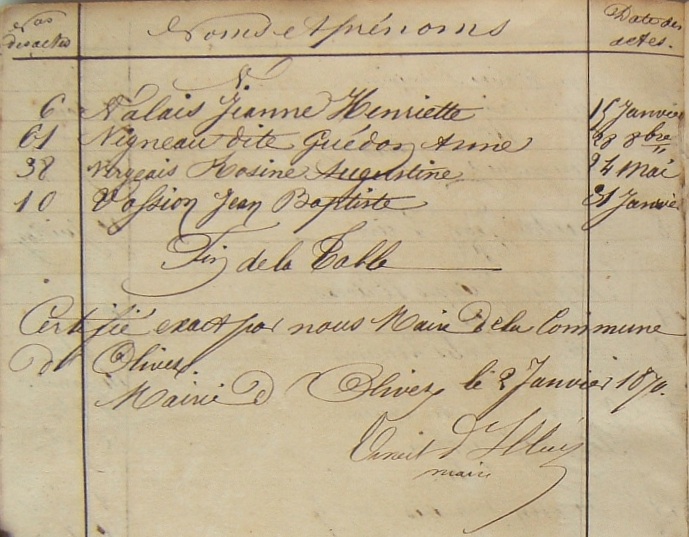 Nos des actes Noms et prénoms Date des actes.
V
6 Valais Jeanne Henriette 15 Janvier
61 Vigneau dite Guédon Anne 28 8bre
38 Virgeais Rosine Augustine 24 Mai
10 Vossion Jean Baptiste 31 Janvie
Fin de la Table
Certifié exact par nous Maire de la Commune
d' Olivet.
Mairie d' Olivet, le 2 Janvier 1870.
maire